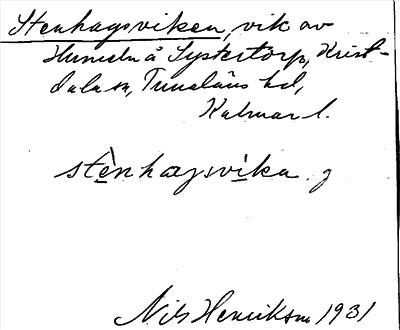 Stenhagsviken, vik av
Hummeln å Systertorp, Krist-
dala sn, Tunaläns hd,
Kalmar l.
stènhagsvìka. g
Nils Henriksson 1931